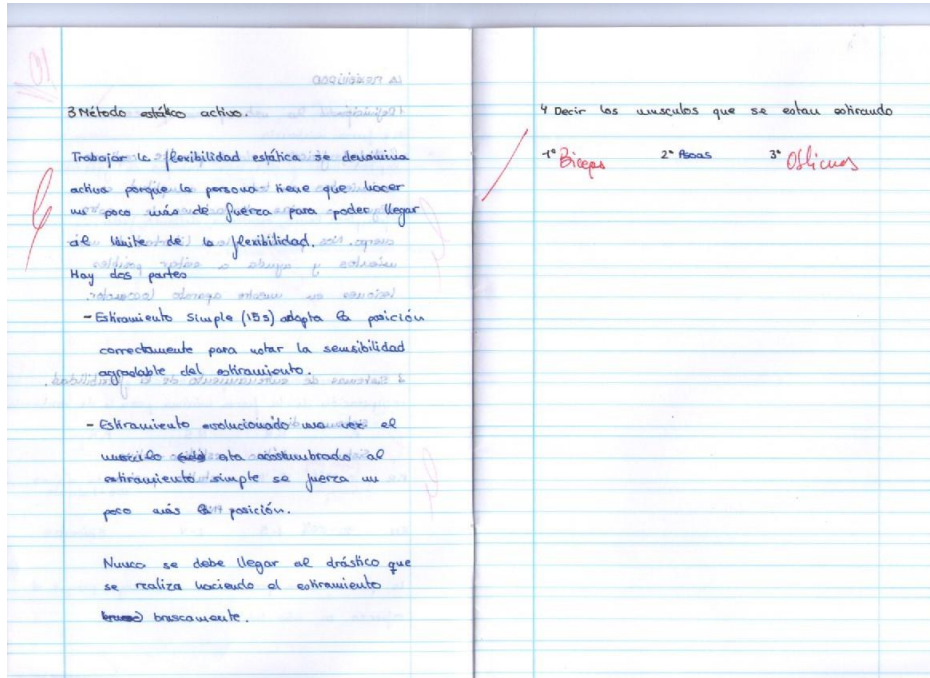 3 Método estático activo.
Trabajar la flexibilidad estática se denomina
activa porque la persona tiene que hacer
un poco más de fuerza para poder llegar
al límite de la flexibilidad.
Hay dos partes
- Estiramiento simple (15s) adopta la posición
correctamente para notar la sensibilidad
agradable del estiramiento.
- Estiramiento evolucionado una vez el
musculo esta acostumbrado al
estiramiento simple se fuerza un
poco más la posición.
Nunca se debe llegar al drástico que
se realiza haciendo el estiramiento
bruscamente.
4 Decir los musculos que se estan estirando
1º Biceps 2º Psoas 3º Oblicuos